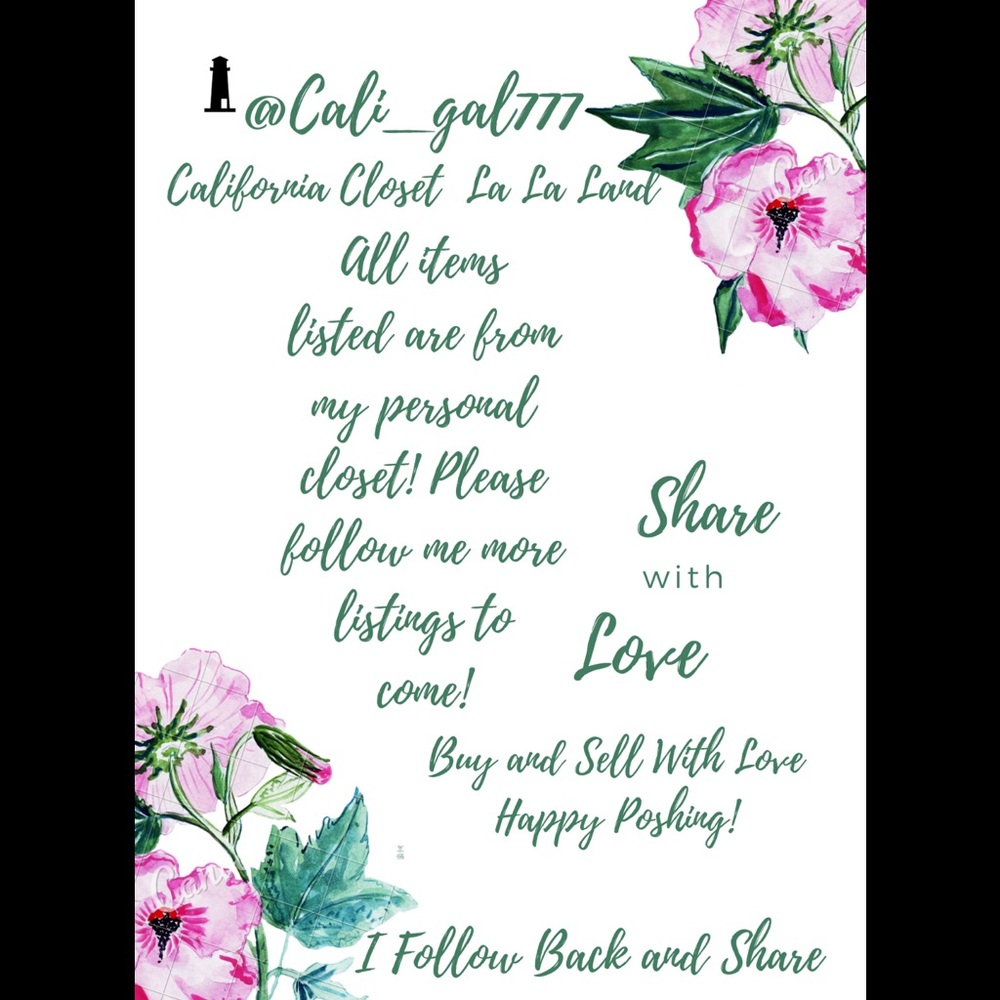 @Cali_gal777
California Closet La La Land
All items
listed are from
my personal
closet! Please
follow me more
listings to
come!
Share
with
Love
Buy and Sell With Love
Happy Poshing!
I Follow Back and Share